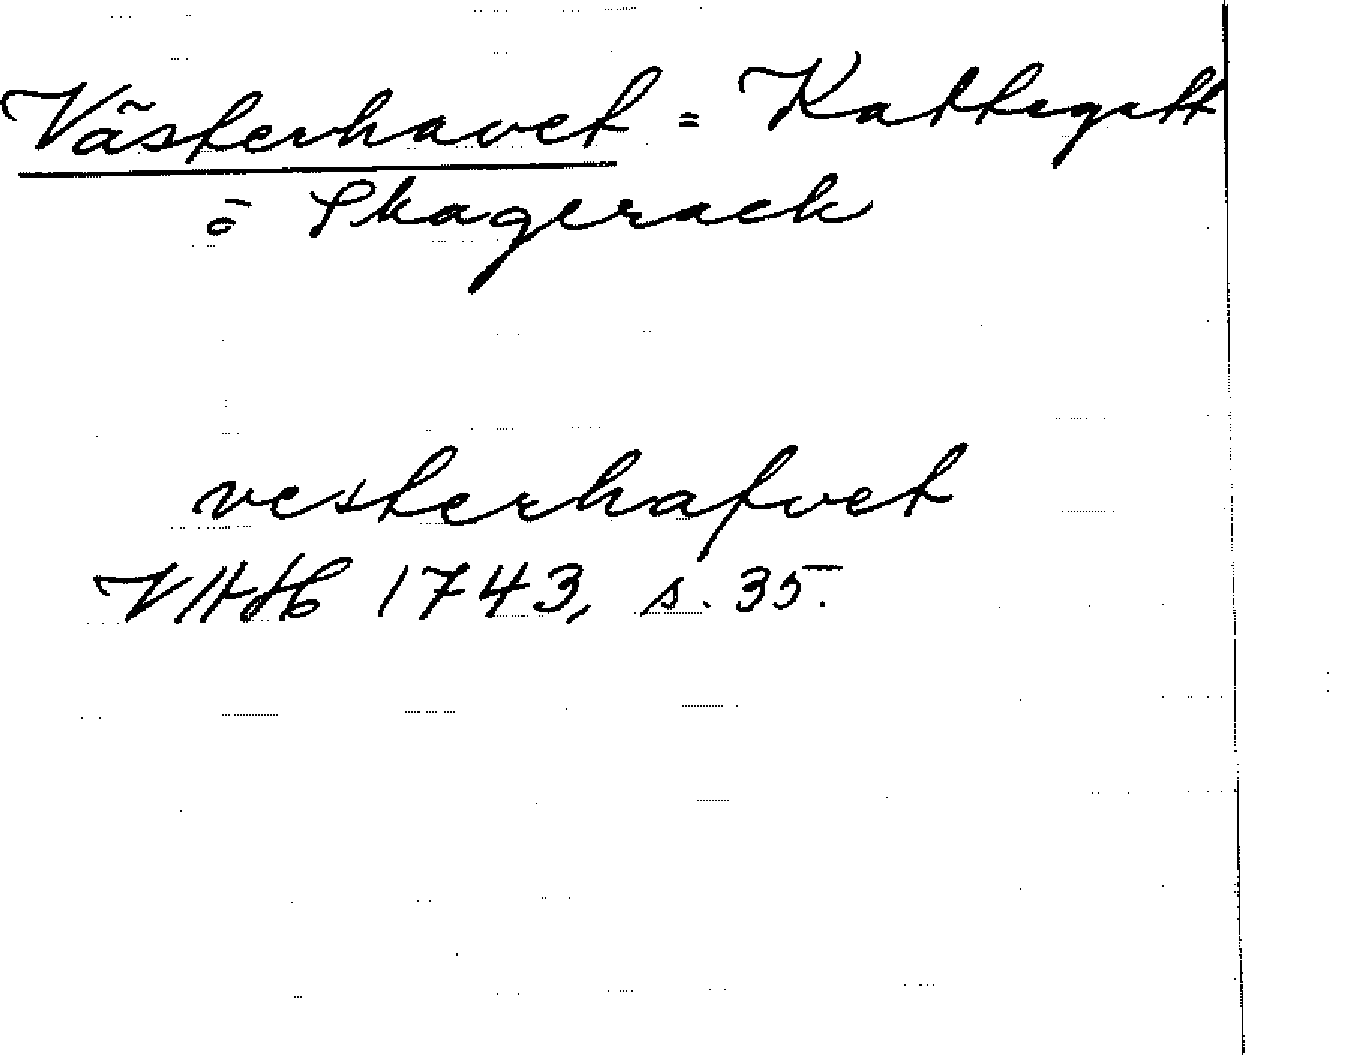 Västerhavet = Kattegatt
o Skagerack
vesterhafvet
VAH 1743, s. 35.